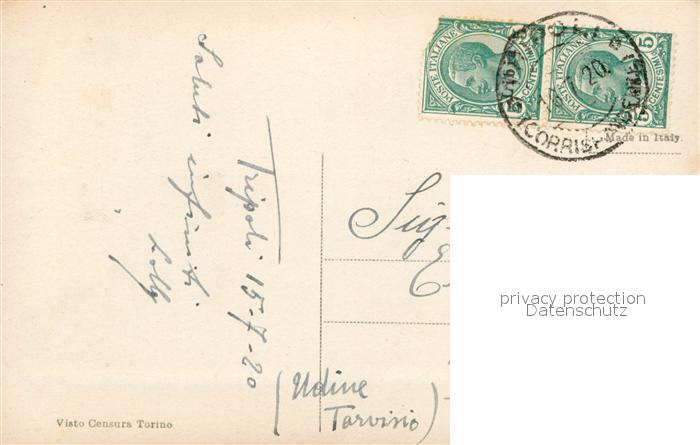 Saluti infiniti
Lolly
Tripoli 15-7-20
POSTE ITALIANE
CENTESIMI 5
POSTE ITALIANE
CENTESIMI 5
Made in Italy.
Sig.
privacy protection
Datenschutz
(Udine
Tarvisio)
Visto Censura Torino